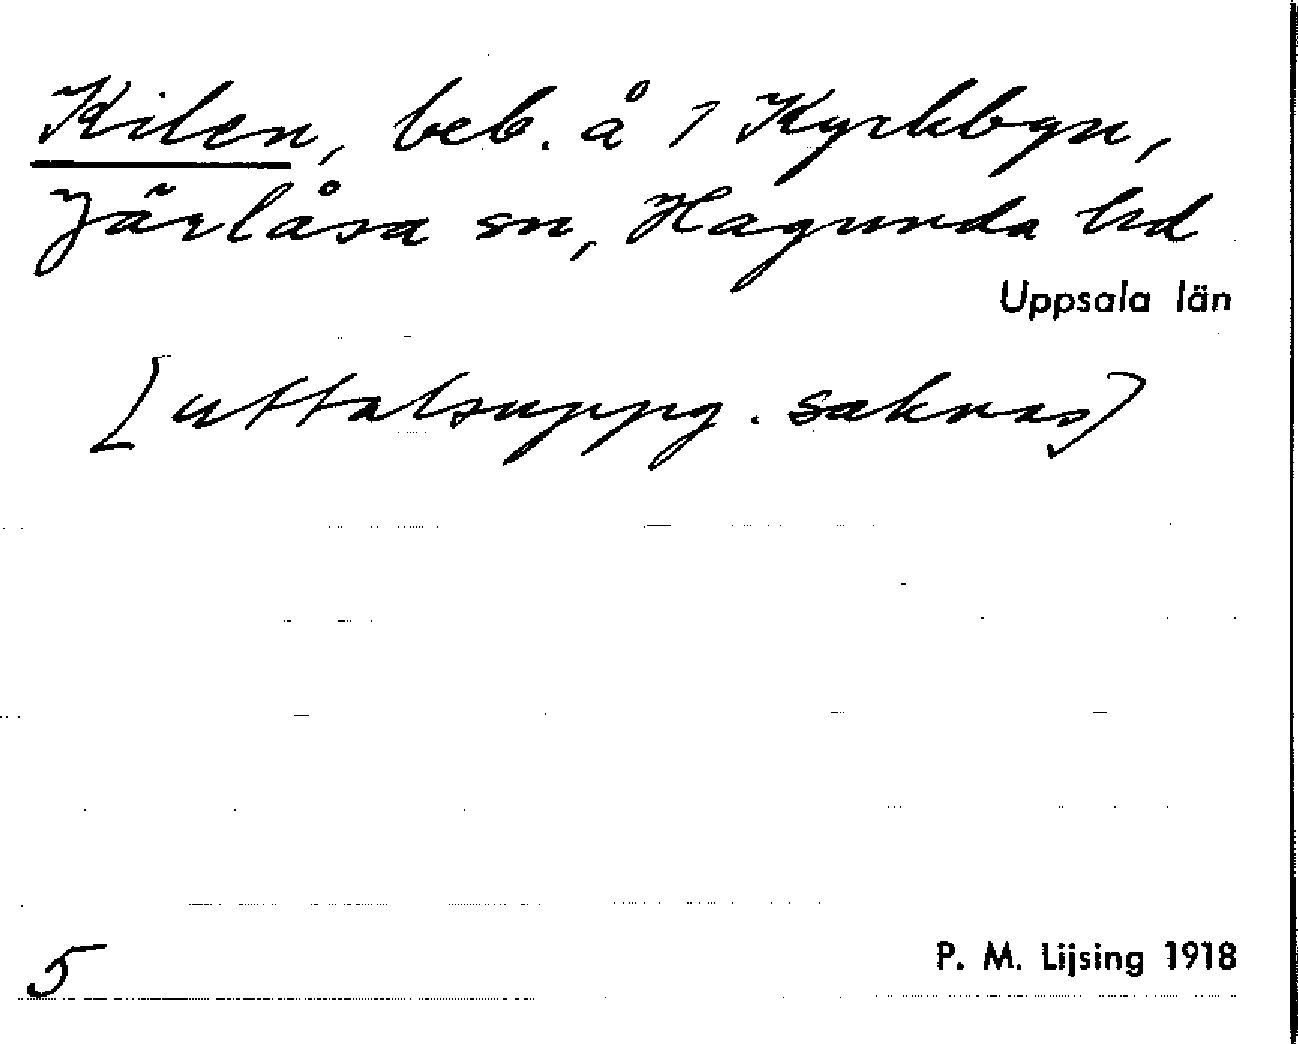 Kilen, beb. å 1 Kyrkbyn,
Järlåsa sn, Hagunda hd
Uppsala län
[uttalsuppg. saknas]
5
P. M. Lijsing 1918